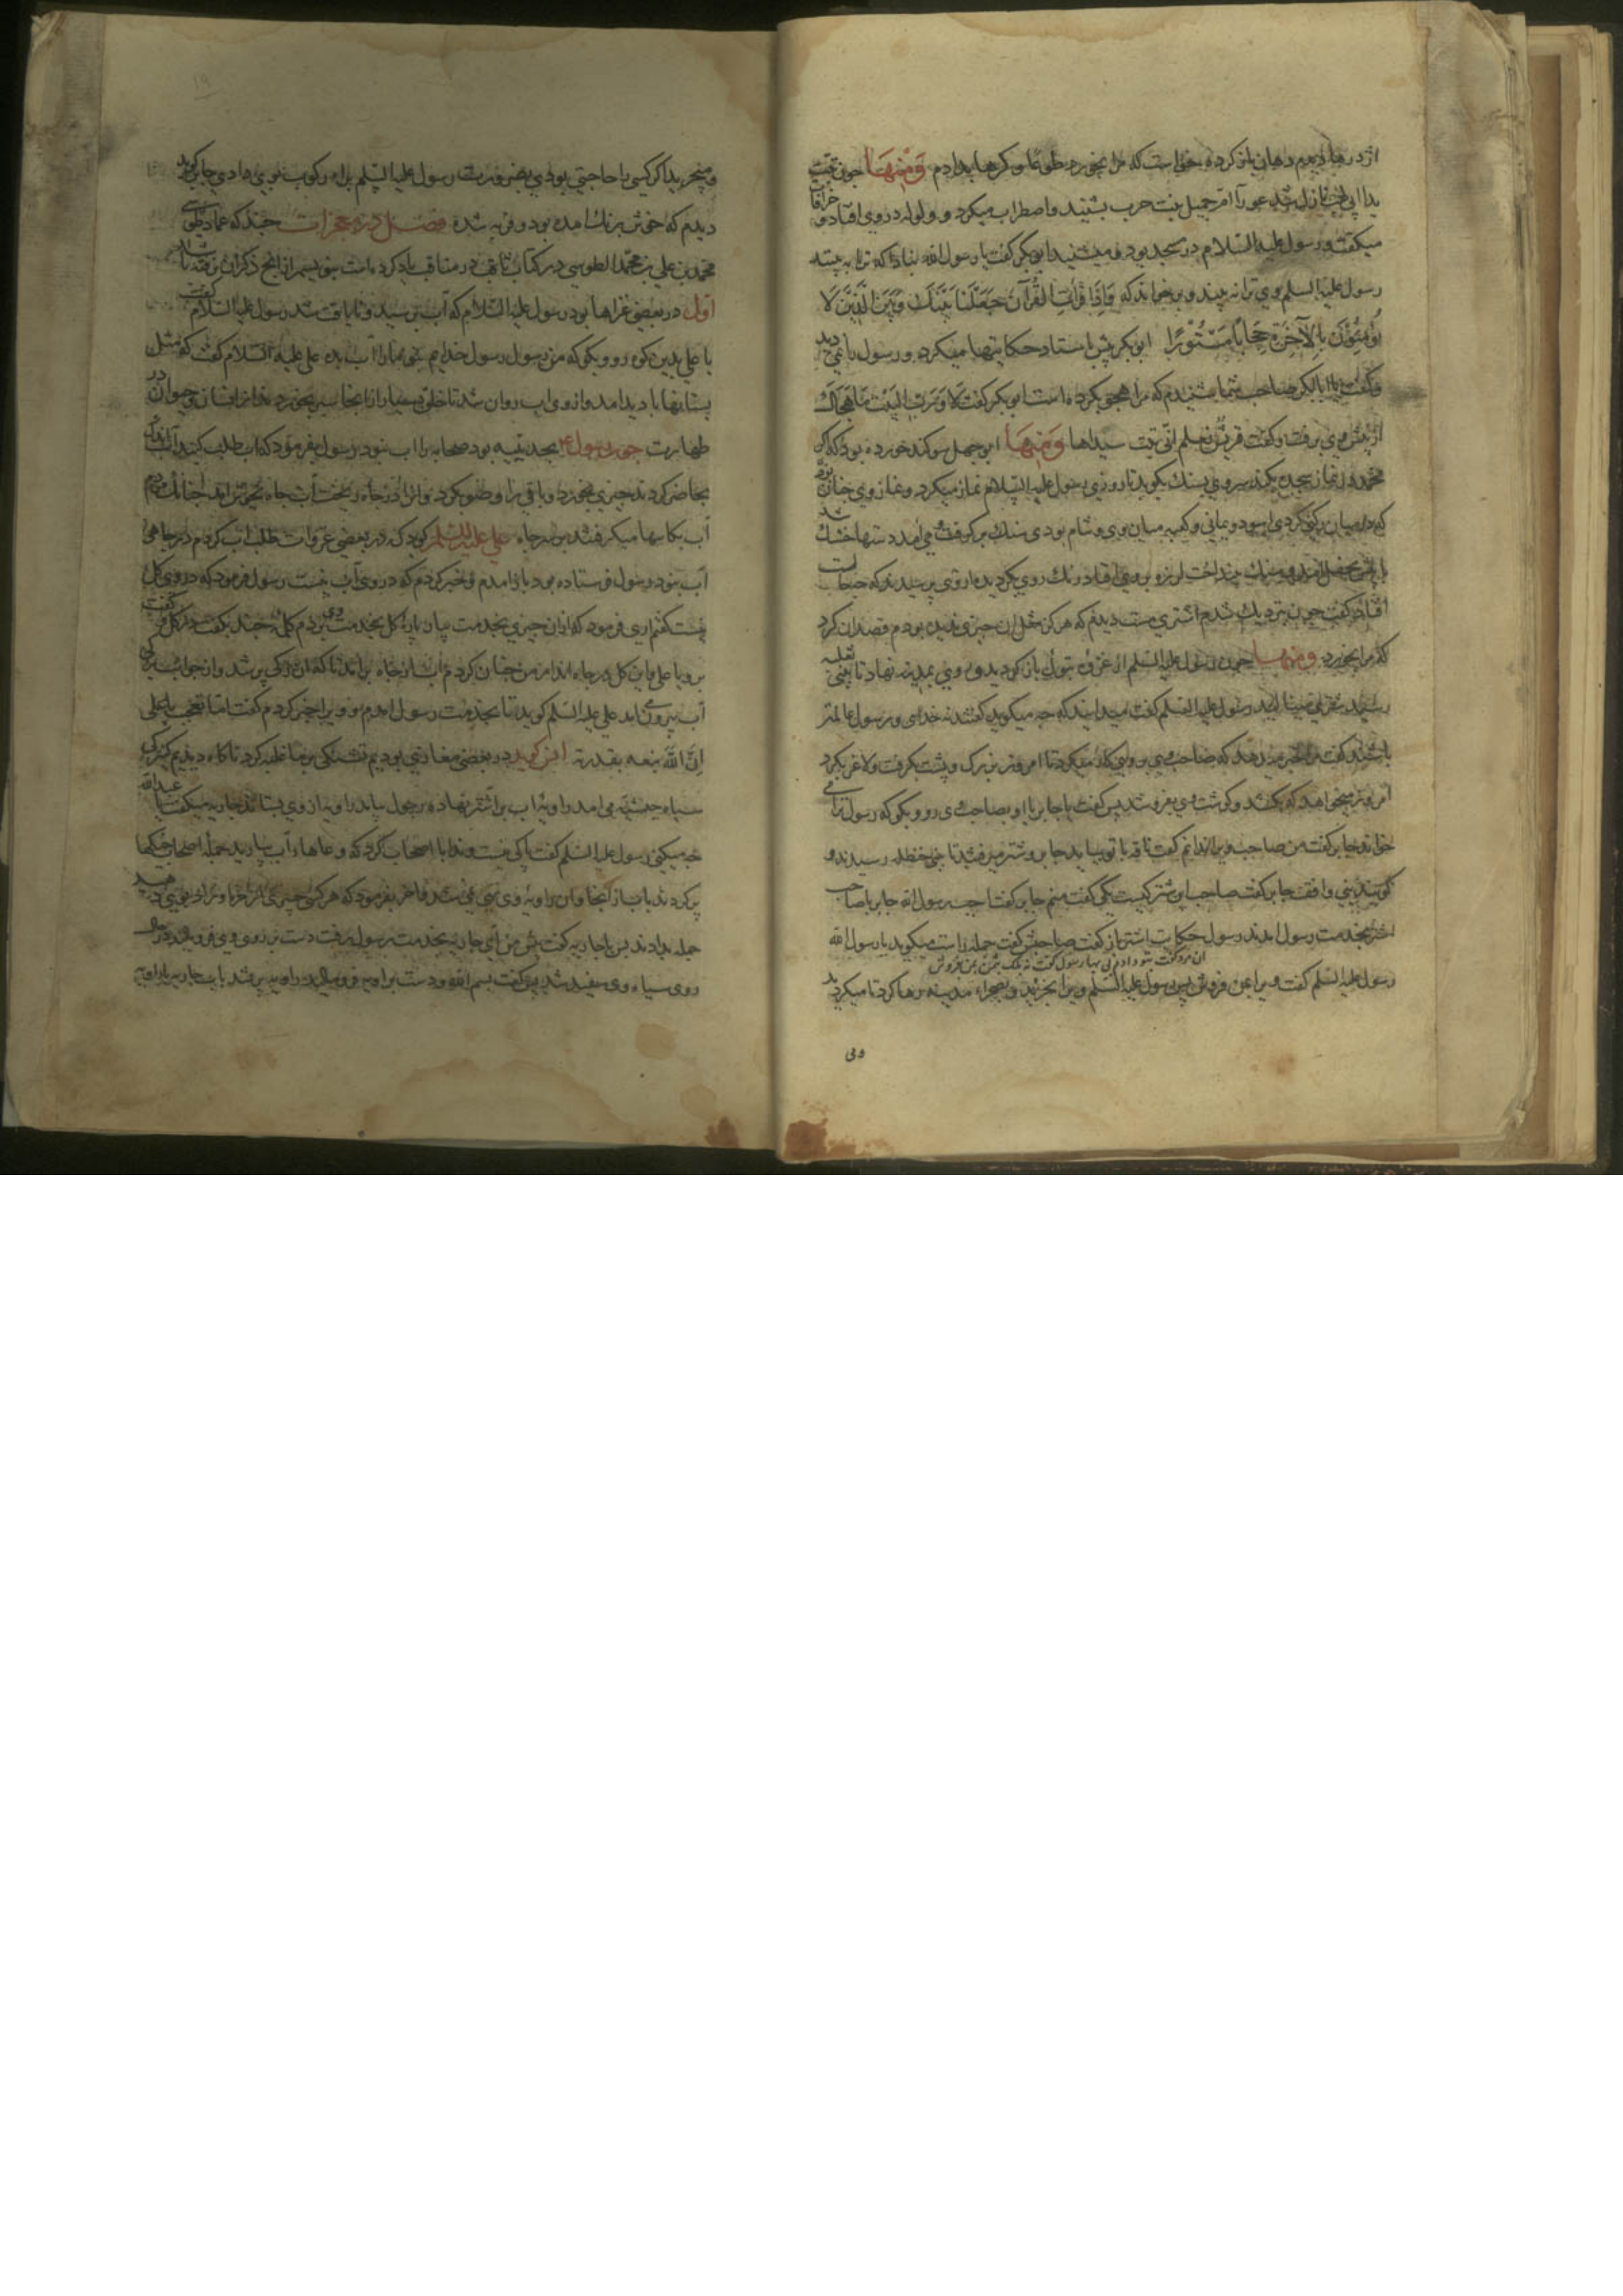 اژدرها دیدم دهان باز کرده خواست که مرا بخورد طوعا و کرها بدادم وَمِنْهَا چون تبت
یدا ابی لهب نازل شد عورا ام جمیل بنت حرب بشنید و اضطراب میکرد و ولوله در وی افتاد و خرافات
میکفت و رسول علیه السلام در مسجد بود و میشنید ابوبکر کفت یا رسول الله نباداکه ترا به بیند
رسول علیه السلم وی ترا نه بیند و بر خواند که وَاِذَا قَرَأتَ القُرْآنَ جَعَلْنَا بَيْنَكَ وَبَيْنَ الَّذِينَ لَا
يُؤْمِنُونَ بِالآخِرَةِ حِجَابًا مَسْتُورًا ابوبکر پیش باستاد حکایتها میکرد و رسول را نمی دید
و کفت یا ابابکر صاحب شما شنیدم که مرا هجو بکرده است ابوبکر کفت لا وَرَبِّ البَيْت مَا هَجَاكَ
از پیش وی برفت و کفت قریش تعلم انی بنت سیدها وَمِنْهَا ابوجهل سوکند خورده بود که اکر
محمد در نماز سجده بکند سر وی بسنک بکوبد تا روزی رسول علیه السلام نماز میکرد و نماز وی چنان بود
که در میان رکن کردی اسود و یمانی و کعبه میان وی و شام بودی سنک بر کرفت می آمد دستها خشک شد
افتاد کفت چون نزدیک شدم اشتری مست دیدم که هرکز مثل آن چیزی ندیده بودم قصد آن کرد
که مرا بخورد ومنها چون رسول علیه السلم از غزوه تبوک باز کردید و روی بمدینه نهاد تا بنی ثعلبه
رسید شتری بنالید رسول علیه السلم کفت میدانید که چه میکوید کفتند نه خدای و رسول عالمتر
باشند کفت مرا خبر میدهد که صاحب وی بر وی کار میکرد تا امروز بزرک و پشت کرفت و لاغر بکرد
امروز میخواهد که بکشد و کوشت وی بفروشد پس کفت یا جابر با او بصاحب وی رو و بکو که رسول ترا می
خواند جابر کفت من صاحب ویرا ندانم کفت ناقه با تو بیاید جابر و شتر میرفتند تا بنی حنظله رسیدند و
جابر کفت صاحب این شتر کیست یکی کفت منم جابر کفت اجب رسول الله جابر با صاحب
اشتر بخدمت رسول امدند رسول حکایت اشتر باز کفت صاحبش کفت جمله راست میکوید یا رسول الله
آن مرد کفت بتو دادم بی بها رسول کفت نه بلک بثمن بمن فروش
رسول علیه السلم کفت ویرا بمن فروش پس رسول علیه السلم ویرا بخرید و بصحراء مدینه رها کرد تا میکردید
ومی
۱۹
ومیچرید اکر کسی را حاجتی بودی بضرورت رسول علیه السلم برای رکوب بوی دادی جابر کوید
دیدم که خوش برنک امده بود و فربه شده فصل در معجزات چند که عماد طوسی
محمد بن علی بن محمد الطوسی در کتاب ثاقب در مناقب یاد کرده است بنویسم از آنچ ذکر آن نرفته باشد
اول در بعضی غزاها بود رسول علیه السلام که آب برسید و نایافت شد رسول علیه السلام کفت
یا علی بدین کوه رو و بکو که من رسول رسول خدایم بتو ما را آب بده علی علیه السلام کفت که مثل
پستانها بادید امد و از وی اب روان شد تا خلق بسیار از انجا سیر بخورد
طهارت چون رسول ع بحدیبیه بود صحابه را اب نبود رسول بفرمود که اب طلب کنید اندک آب
بحاضر کردند چیزی بخورد و باقی را وضو بکرد و انرا در چاه ریخت آب چاه بجوش آمد چنانک مردم
آب بکاسها میکرفتند بر سر چاه علی علیه السلم کوید که در بعضی غزوات طلب اب کردم در چاهی
آب نبود رسول فرستاده بود باز امدم و خبر کردم که در وی آب نیست رسول فرمود که در وی کل
نیست کفتم اری فرمود که از ان چیزی بخدمت بیار پاره کل بخدمت وی بردم کلمه چند بکفت در کل و کفت
برو یا علی و این کل در چاه انداز من چنان کردم آب از چاه برامد تا که ان رکی پر شد و از جوانب رکی
آب بیرون امد علی علیه السلم کوید تا بخدمت رسول امدم و ویرا خبر کردم کفت اما تعجب یا علی
اِنَّ الله نبعه بقدرته انس کوید در بعضی مغازی بودیم تشنکی بر ما غلبه کرد ناکاه دیدیم کنیزکی
سیاه حبشیه می امد راویه اب بر اشتر نهاده رسول بیامد راویه از وی بستاند جاریه میکفت یا عبدالله
چه میکنی رسول علیه السلم کفت باکی نیست و ندا با اصحاب کرد که وعاهاء آب بیارید جمله اصحاب خیکها
پر کردند
جمله بدادند پس با جاریه کفت پیش من آی جاریه بخدمت رسول رفت دست بر روی وی فرو مالید در حال
روی سیاه وی سفید شد پس کفت بسم الله و دست براویه فرو مالید راویه پر شد باب جاریه با راویه